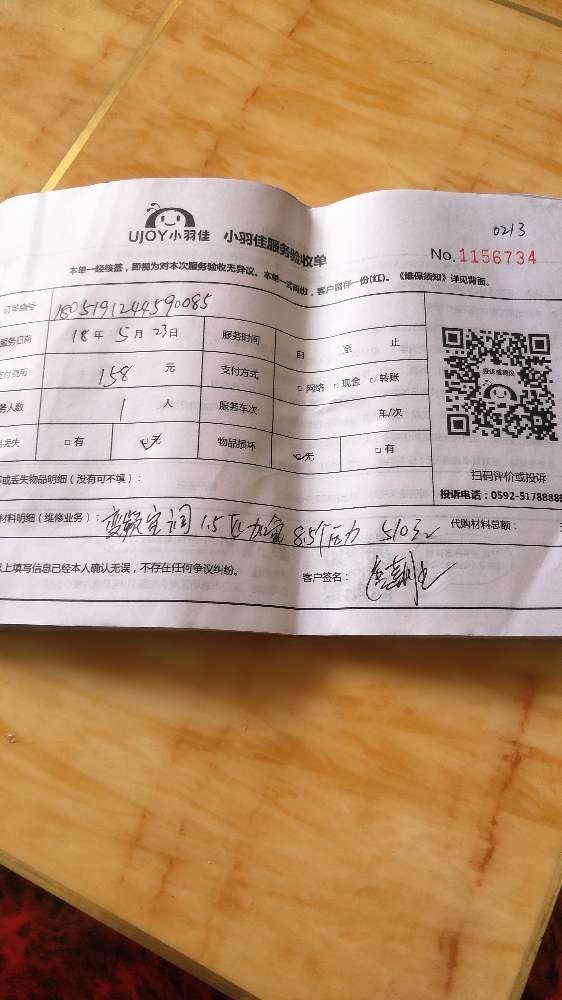 0213
UJOY小羽佳 小羽佳服务验收单 No.1156734
本单一经核签，即视为对本次服务验收无异议。本单一式两份，客户留存一份(红)。《维保须知》详见背面。
订单编号 1805191244590085
服务日期 18年5月23日 服务时间 自 至 止
支付费用 158 元 支付方式 □网络 □现金 □转账
务人数 1 人 服务车次 车/次
丢失 □有 无 物品损坏 无 □有
投诉或建议
扫码评价或投诉
或丢失物品明细（没有可不填）：
投诉电话：0592-5178888
材料明细（维修业务）： 变频 1.5匹 8.5个压力 代购材料总额： 元
上填写信息已经本人确认无误，不存在任何争议纠纷。 客户签名：